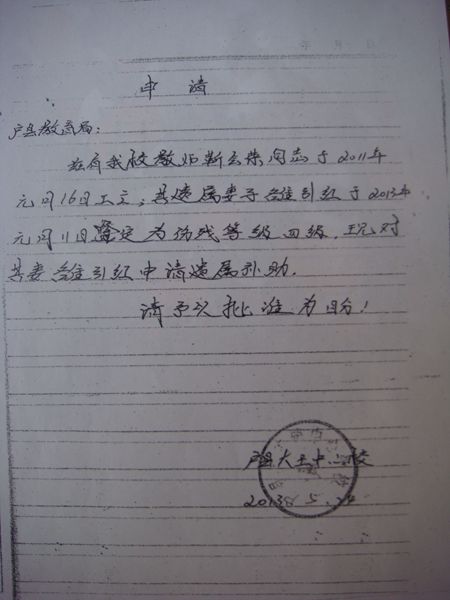 申 请
户县教育局:
兹有我校教师靳会荣同志于2011年
元月16日工亡,其遗属妻子雒引红于2013年
元月11日鉴定为伤残等级四级.现对
其妻雒引红申请遗属补助.
请予以批准为盼!
户县大王十小校
2013.5.